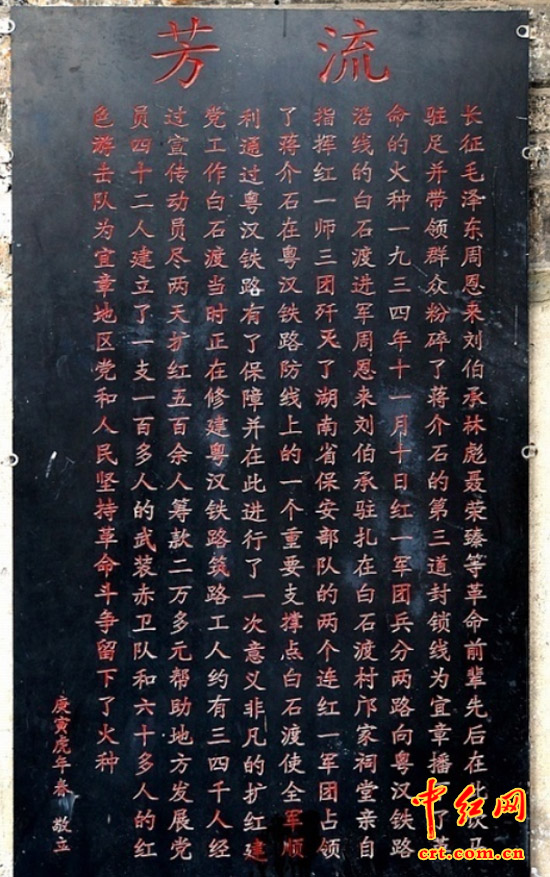 流芳
长征毛泽东周恩来刘伯承林彪聂荣臻等革命前辈先后在此马
驻足并带领群众粉碎了蒋介石的第三道封锁线为宜章播了
命的火种一九三四年十一月十日红一军团兵分两路向粤汉铁路
沿线的白石渡进军周恩来刘伯承驻扎在白石渡村邝家祠堂亲自
指挥红一师三团歼灭了湖南省保安部队的两个连红一军团占领
了蒋介石在粤汉铁路防线上的一个重要支撑点白石渡使全军顺
利通过粤汉铁路有了保障并在此进行了一次意义非凡的扩红建
党工作白石渡当时正在修建粤汉铁路筑路工人约有三四千人经
过宣传动员尽两天扩红五百余人筹款二万多元帮助地方发展党
员四十二人建立了一支一百多人的武装赤卫队和六十多人的红
色游击队为宜章地区党和人民坚持革命斗争留下了火种
庚寅虎年春 敬立
中红网
crt.com.cn